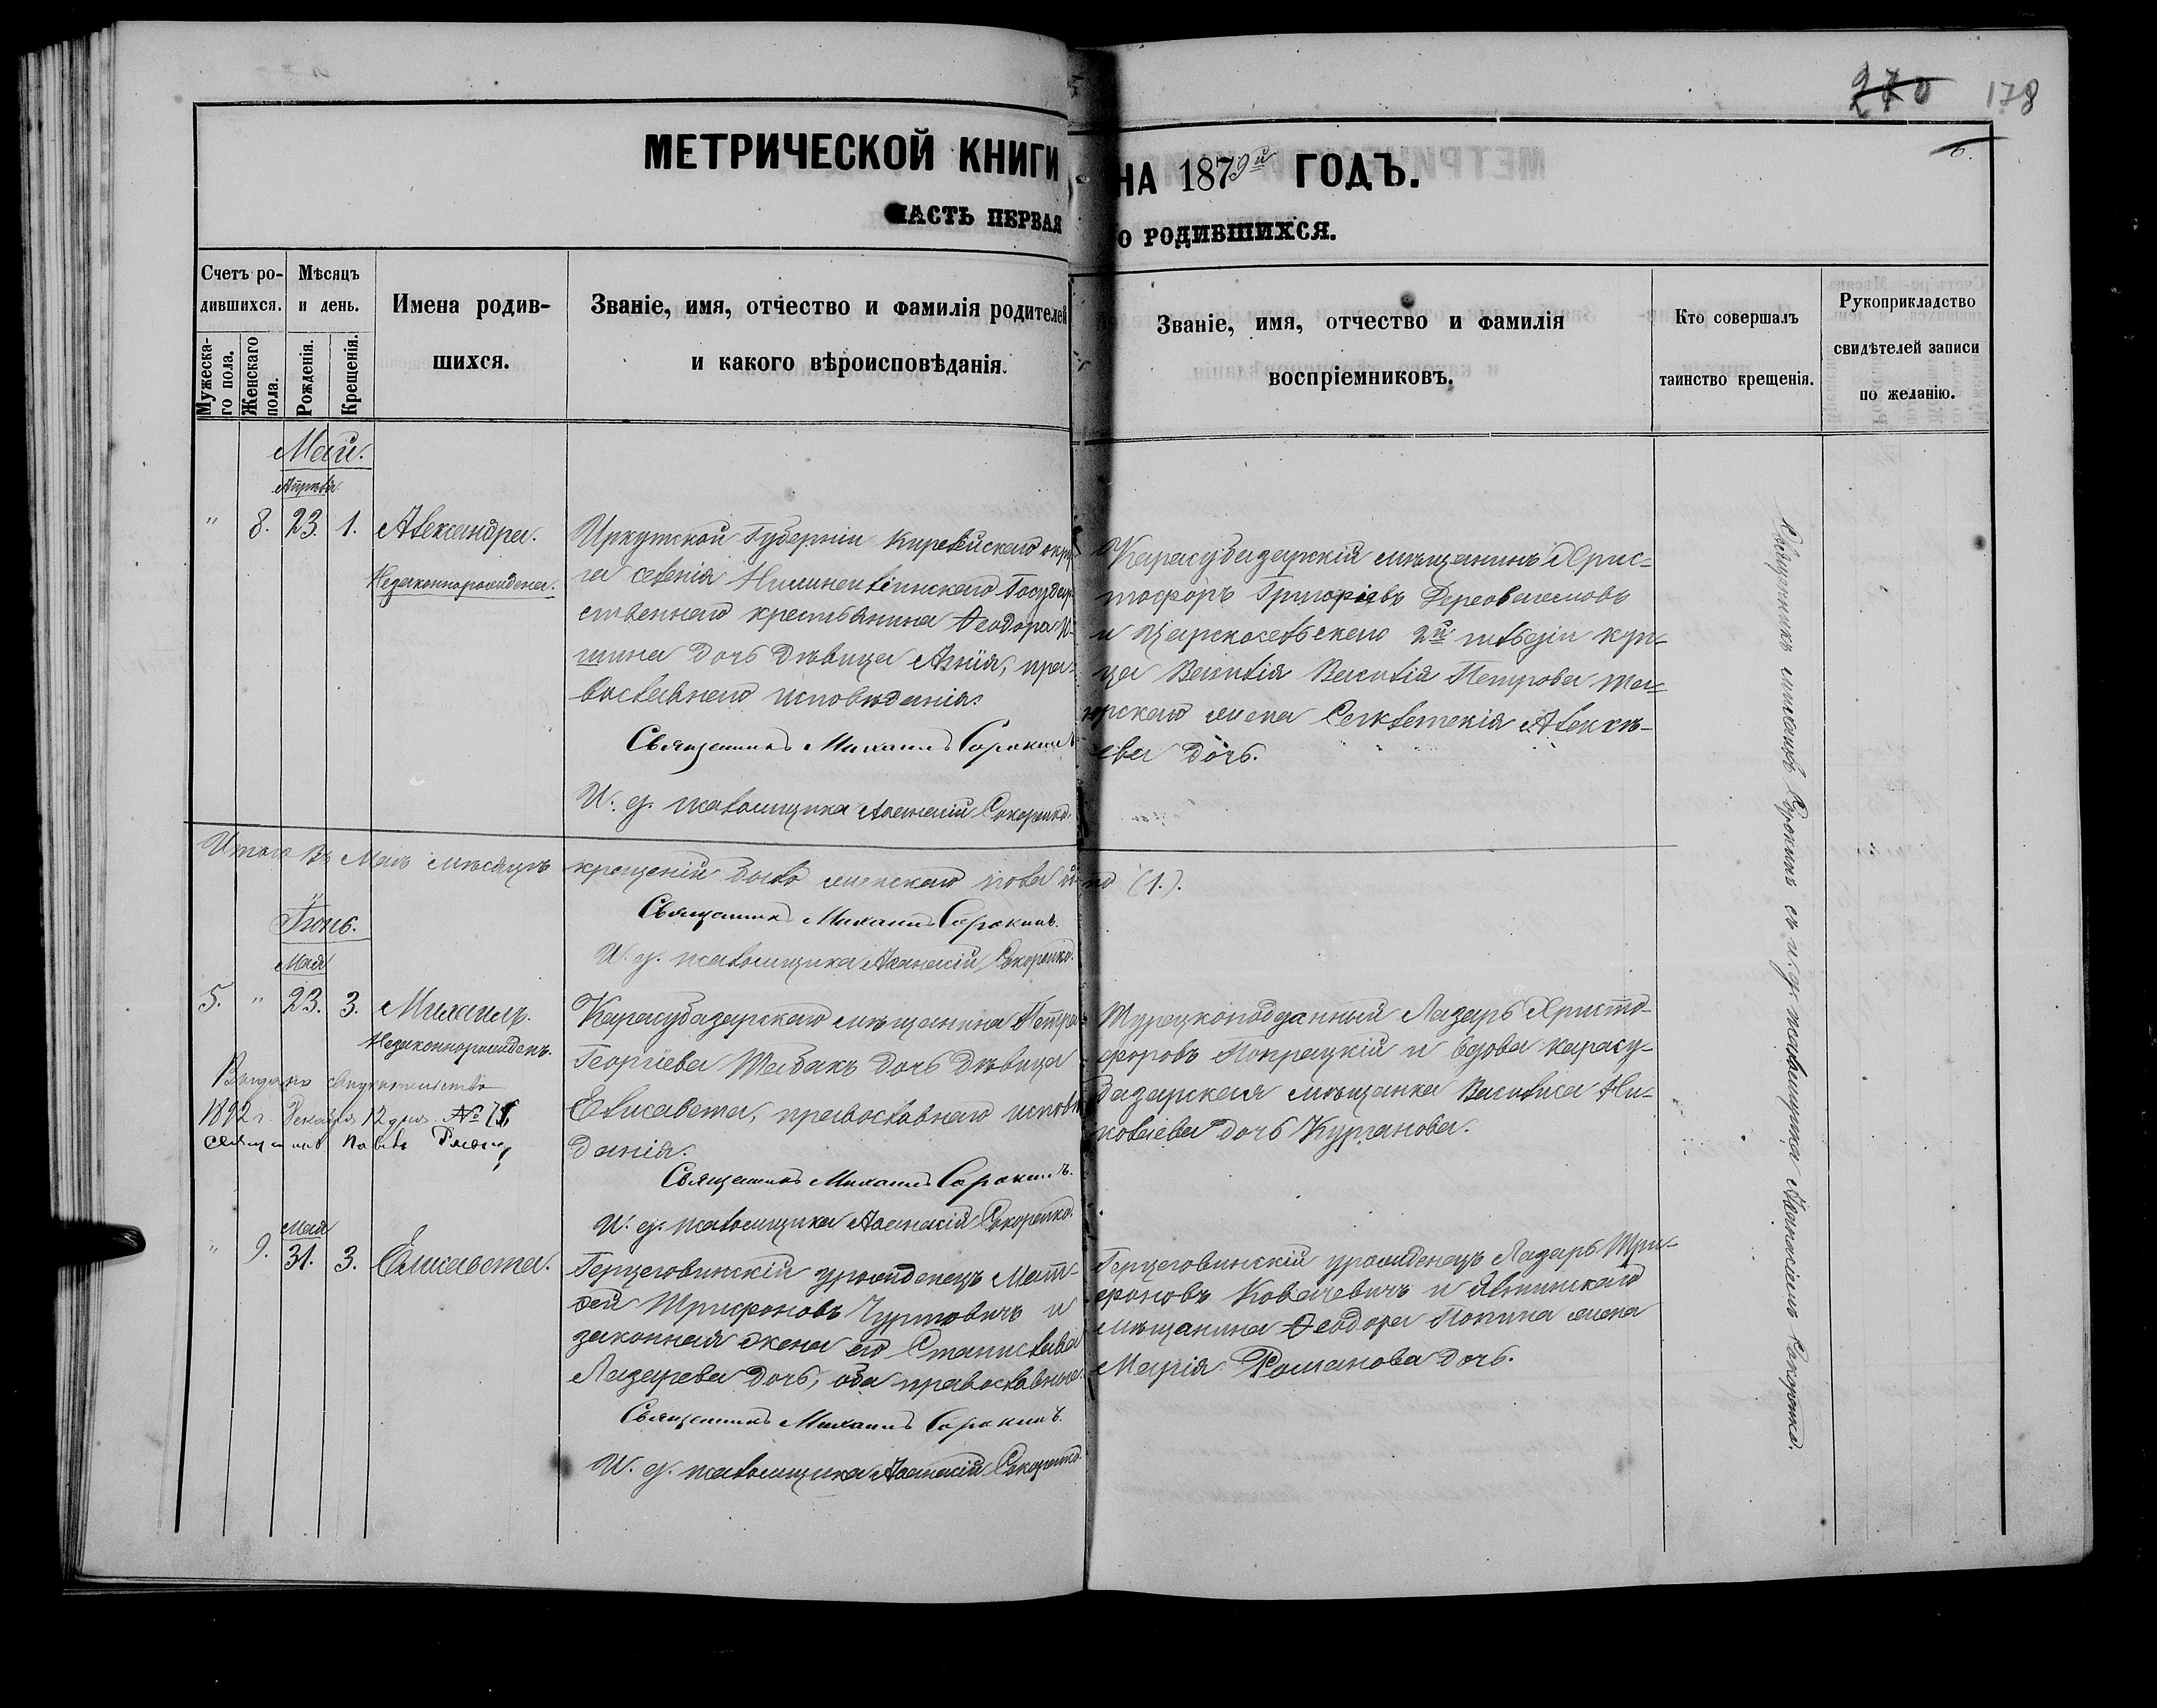 270 178
6.
МЕТРИЧЕСКОЙ КНИГИ НА 1879й ГОДЪ.
ЧАСТЬ ПЕРВАЯ О РОДИВШИХСЯ.
Счетъ ро-
дившихся.
Мужеска-
го пола.
Женскаго
пола.
Мѣсяцъ
и день.
Рожденія.
Крещенія.
Имена родив-
шихся.
Званіе, имя, отчество и фамилія родителей
и какого вѣроисповѣданія.
Званіе, имя, отчество и фамилія
воспріемниковъ.
Кто совершалъ
таинство крещенія.
Рукоприкладство
свидѣтелей записи
по желанію.
Май.
Апрѣля
" 8. 23. 1. Александра.
Незаконнорожденна.
Иркутской Губерніи Киренскаго окру-
га селенія Государ-
ственнаго крестьянина Ѳеодора
дочь дѣвица Анна, пра-
вославнаго исповѣданія.
Священникъ Михаилъ Сорокинъ
И. д. псаломщика Аѳанасій Сикоренко.
Карасубазарскій мѣщанинъ Хрис-
тофоръ Григорьевъ
и Царскосельскаго 2й гильдіи куп-
ца Василія Василія Петрова
жена Александра Алексѣ-
ева дочь.
Итого въ Маѣ мѣсяцѣ крещеній было женскаго пола одно (1.).
Священникъ Михаилъ Сорокинъ.
И. д. псаломщика Аѳанасій Сикоренко.
Іюнь.
Мая
5. " 23. 3. Михаилъ.
Незаконнорожденъ.
Выдано свидѣтельство
1892 г. Декабря 12 дня №
священникъ Павелъ
Карасубазарскаго мѣщанина Петра
Георгіева Шабакъ дочь дѣвица
Елисавета, православнаго исповѣ-
данія.
Священникъ Михаилъ Сорокинъ.
И. д. псаломщика Аѳанасій Сикоренко.
Турецкоподданный Лазарь Христо-
форовъ и вдова карасу-
базарская мѣщанка Василиса Ни-
колаева дочь Курганова.
Мая
" 9. 31. 3. Елисавета.
Герцеговинскій урожденецъ Мат-
ѳей Трифоновъ и
законная жена его Станислава
Лазарева дочь, оба православные.
Священникъ Михаилъ Сорокинъ.
И. д. псаломщика Аѳанасій Сикоренко.
Герцеговинскій урожденецъ Лазарь Три-
фоновъ Ковачевичъ и Ялтинскаго
мѣщанина Ѳеодора Попина жена
Марія Романова дочь.
Священникъ Михаилъ Сорокинъ съ и. д. псаломщика Аѳанасіемъ Сикоренко.